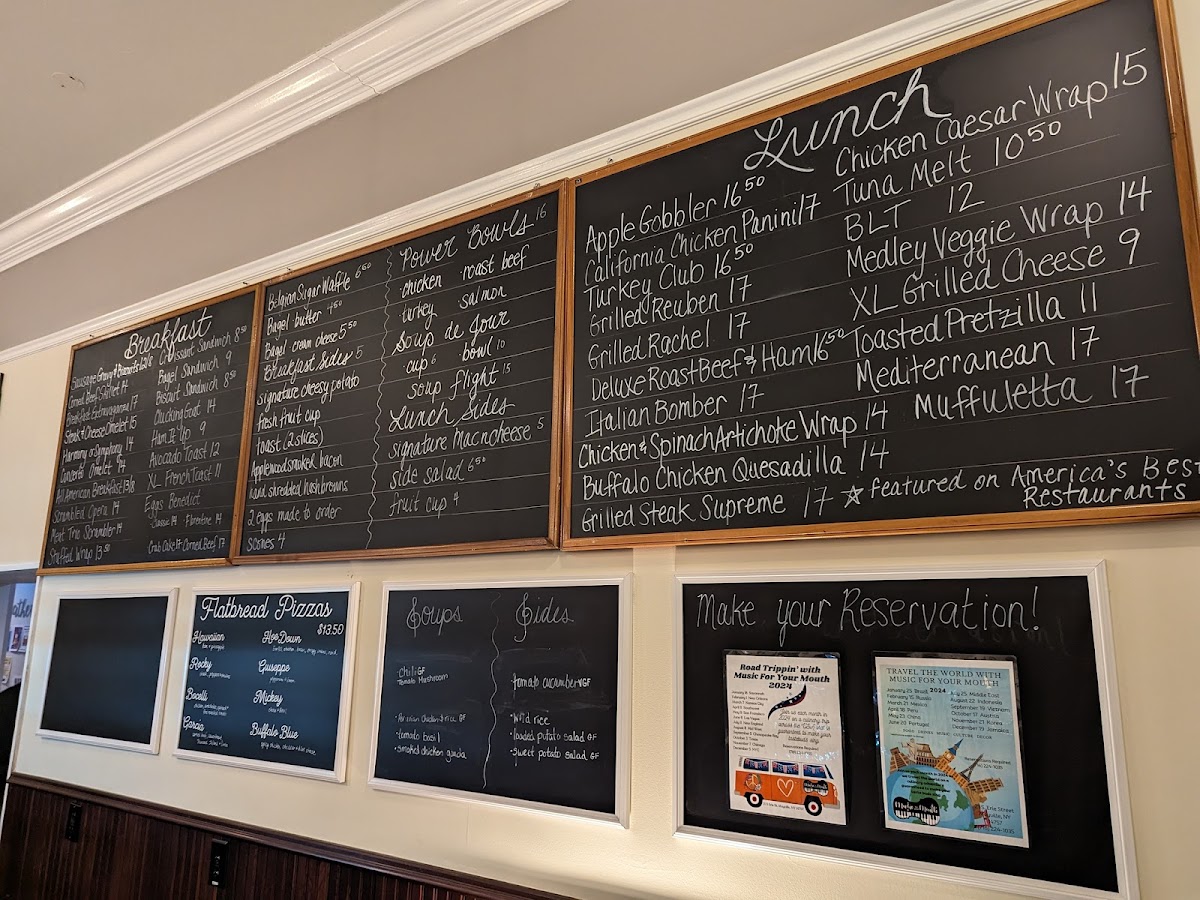 Breakfast
Sausage Gravy & Biscuits
Corned Beef Skillet 14
Breakfast Extravaganza 17
Steak & Cheese Omelet 15
Harmony or Symphony 14
Concerto Omelet 14
All American Breakfast
Scrambled Opera 14
Meat Trio Scrambler 14
Stuffed Wrap 13.50
Croissant Sandwich 8.50
Bagel Sandwich 9
Biscuit Sandwich 8.50
Clucking Goat 14
Ham It Up 9
Avocado Toast 12
XL French Toast 11
Eggs Benedict
Classic 14 Florentine 14
Crab Cake 17 Corned Beef 17
Belgian Sugar Waffle 6.50
Bagel butter 4.50
Bagel cream cheese 5.50
Breakfast Sides 5
signature cheesy potato
fresh fruit cup
toast (2 slices)
Applewood smoked bacon
hand shredded hashbrowns
2 eggs made to order
Scones 4
Power Bowls 16
chicken · roast beef
turkey salmon
Soup de Jour
cup 6 · bowl 10
soup flight 15
Lunch Sides
signature Mac n cheese 5
side salad 6.50
fruit cup 4
Lunch
Apple Gobbler 16.50
California Chicken Panini 17
Turkey Club 16.50
Grilled Reuben 17
Grilled Rachel 17
Deluxe Roast Beef & Ham 16.50
Italian Bomber 17
Chicken & Spinach Artichoke Wrap 14
Buffalo Chicken Quesadilla 14
Grilled Steak Supreme 17
Chicken Caesar Wrap 15
Tuna Melt 10.50
BLT 12
Medley Veggie Wrap 14
XL Grilled Cheese 9
Toasted Pretzilla 11
Mediterranean 17
Muffuletta 17
☆ featured on America's Best
Restaurants
Flatbread Pizzas
$13.50
Hawaiian
Rocky
Bocelli
Garcia
HoeDown
Guiseppe
Mickey
Buffalo Blue
Soups
Chili GF
Tomato Mushroom
· tomato basil
· smoked chicken gouda
Sides
tomato cucumber VGF
· Wild rice
· loaded potato salad GF
· sweet potato salad GF
Make your Reservation!
Road Trippin' with
Music For Your Mouth
2024
TRAVEL THE WORLD WITH
MUSIC FOR YOUR MOUTH
2024
January 25 Brazil
February 15 Russia
March 21 Mexico
April 18 Peru
May 23 China
June 20 Portugal
July 25 Middle East
August 22 Indonesia
September 19 Vietnam
October 17 Austria
November 21 Korea
December 19 Jamaica